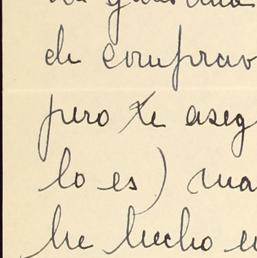 de comprar
pero te aseg
lo es) ma
he hecho e